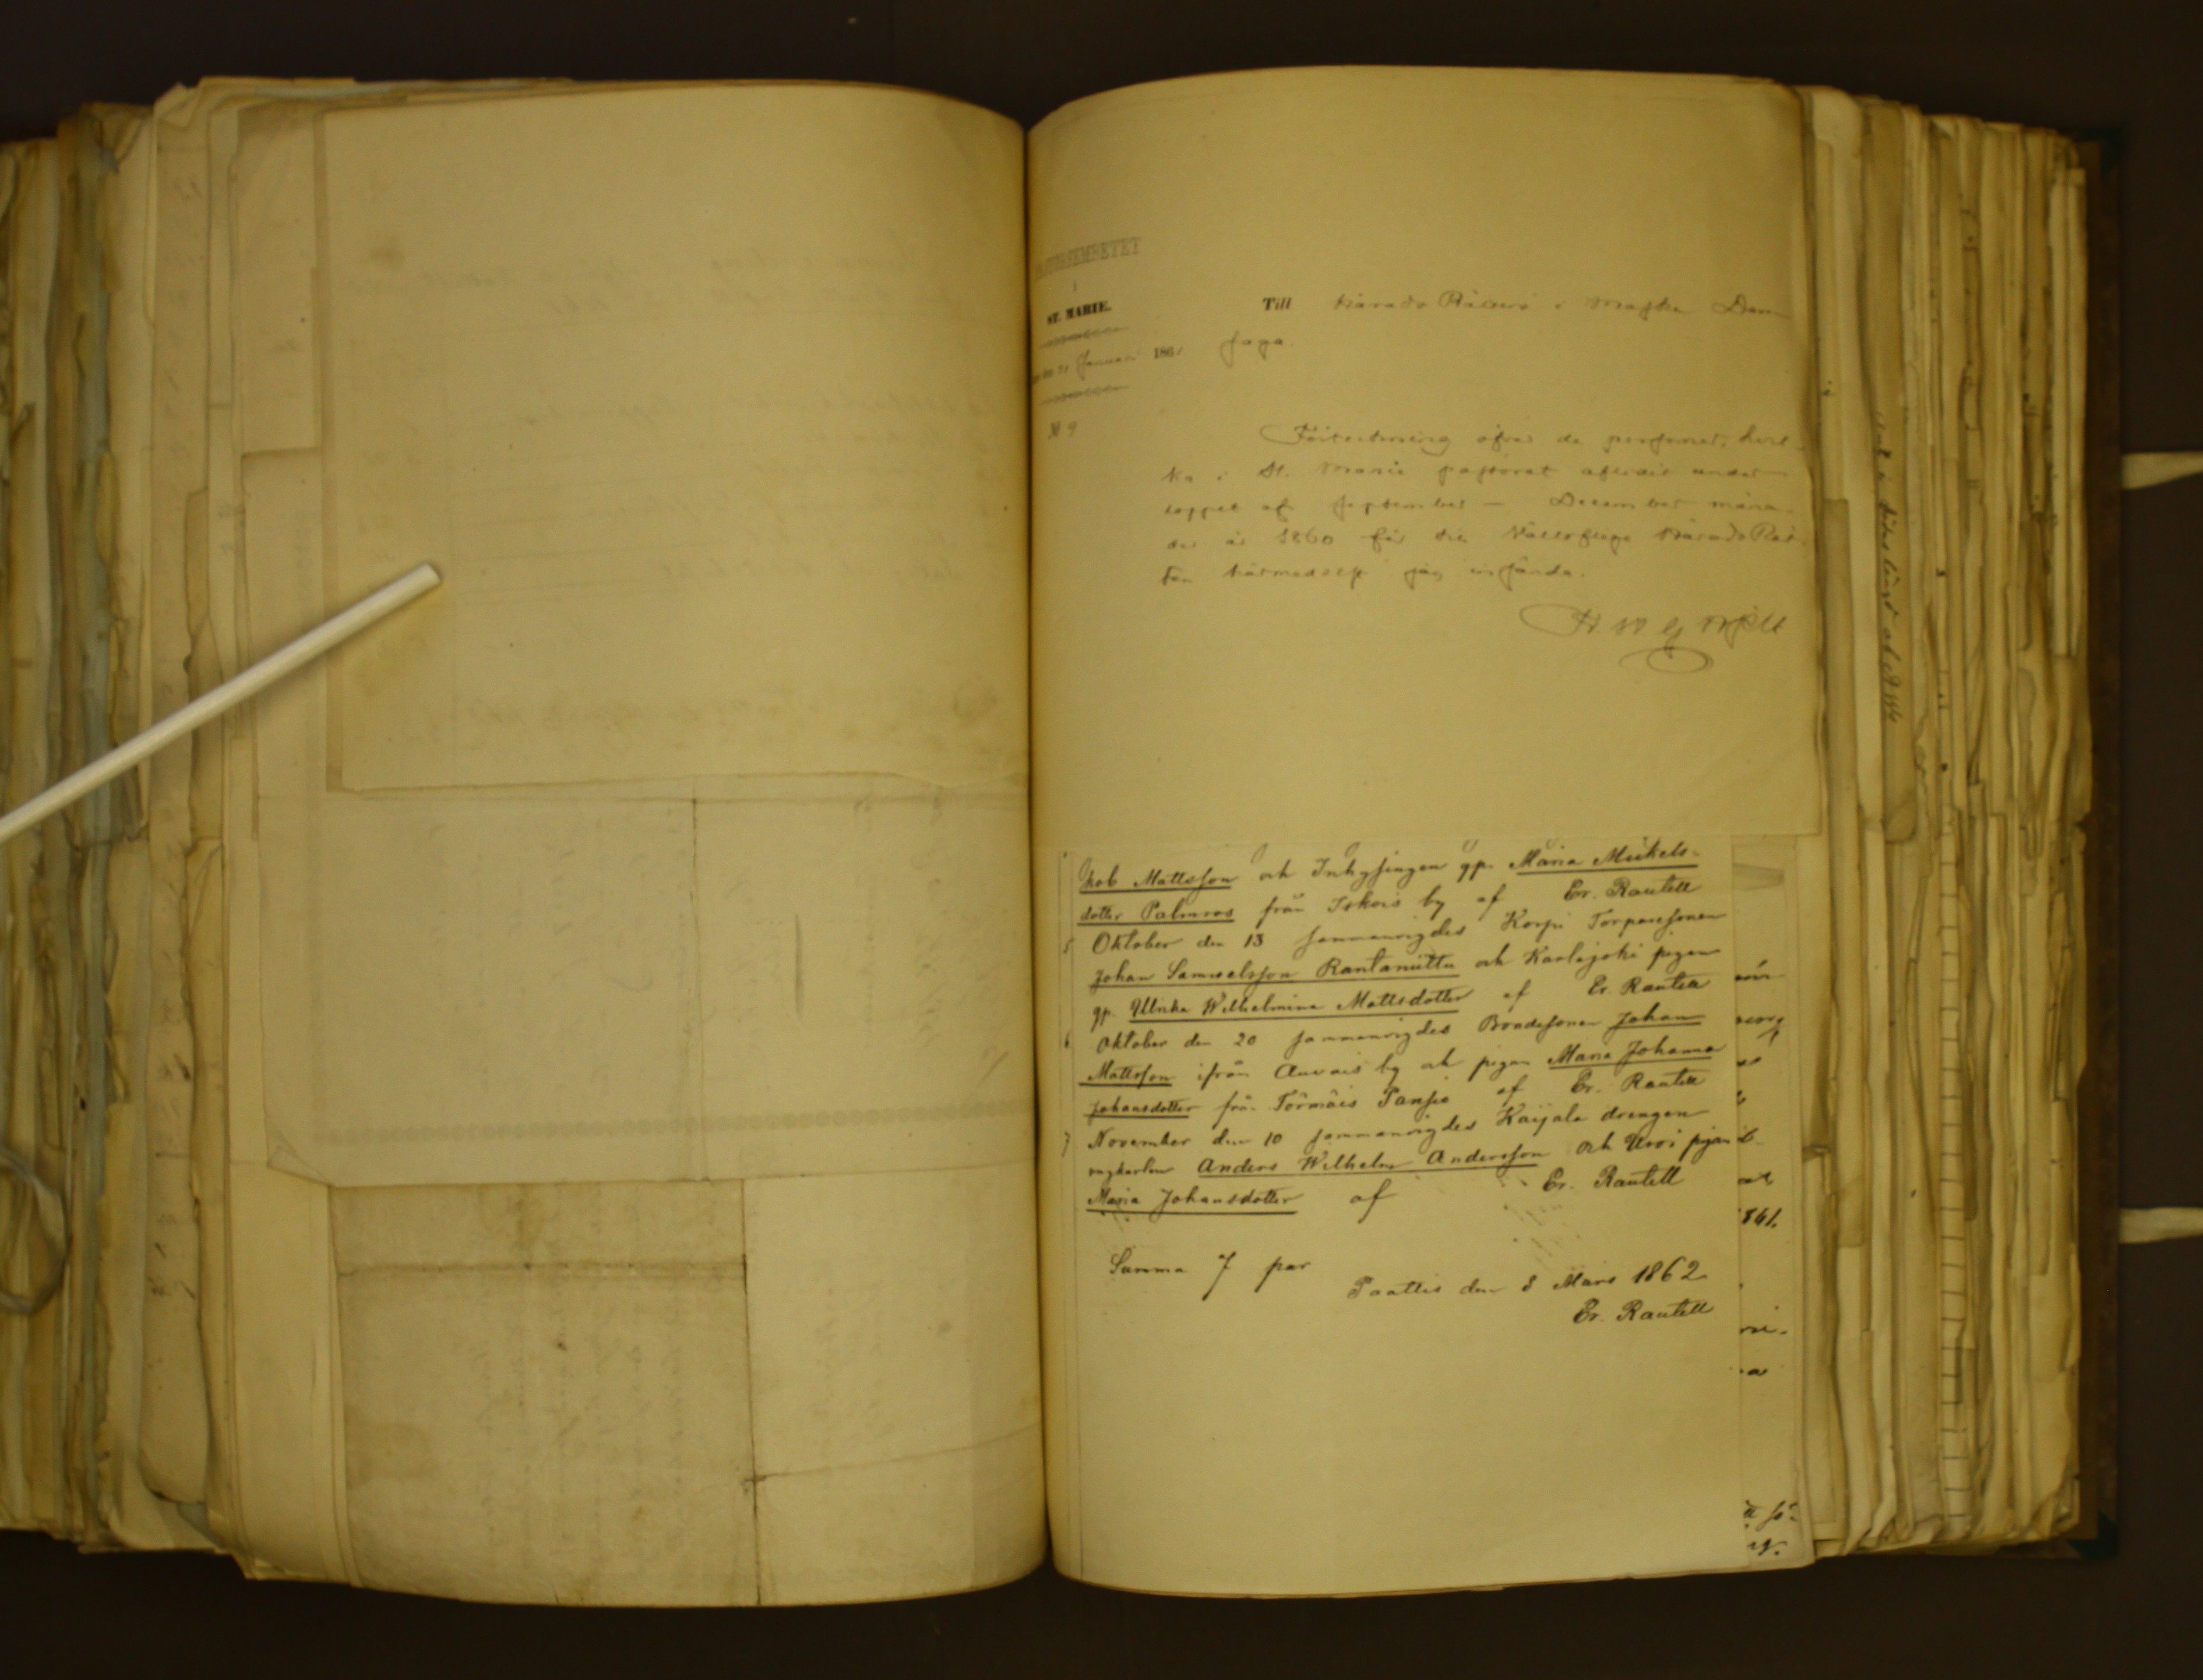 ST. MARIE.
Till Härads Rätten i Masku Dom
saga.
den 21 Januari 1861
№ 9
Förteckning öfver de personer, hvil-
ka i St. Marie pastorat aflidit under
loppet af September – December måna-
der år 1860 får till Vällofliga Härads Rät-
ten härmedelst jag insända.
kob Mattsson och Inhysingen qp. Maria Mickels-
dotter Palmros från Iskois by af Er. Rautell
5 Oktober den 13 sammanvigdes Korpi Torparesonen
Johan Samuelsson Rantanittu och Kaulajoki pigan
qp. Ulrika Wilhelmina Mattsdotter af Er. Rautell
6 Oktober den 20 sammanvigdes Bondesonen Johan
Mattsson ifrån Auvais by och pigan Maria Johanna
Johansdotter från Törmäis Pansio af Er. Rautell
7 November den 10 sammanvigdes Kaijala drengen
ungkarlen Anders Wilhelm Andersson och Uroi pigan
Maria Johansdotter af Er. Rautell
Summa 7 par
Paattis den 8 Mars 1862
Er. Rautell